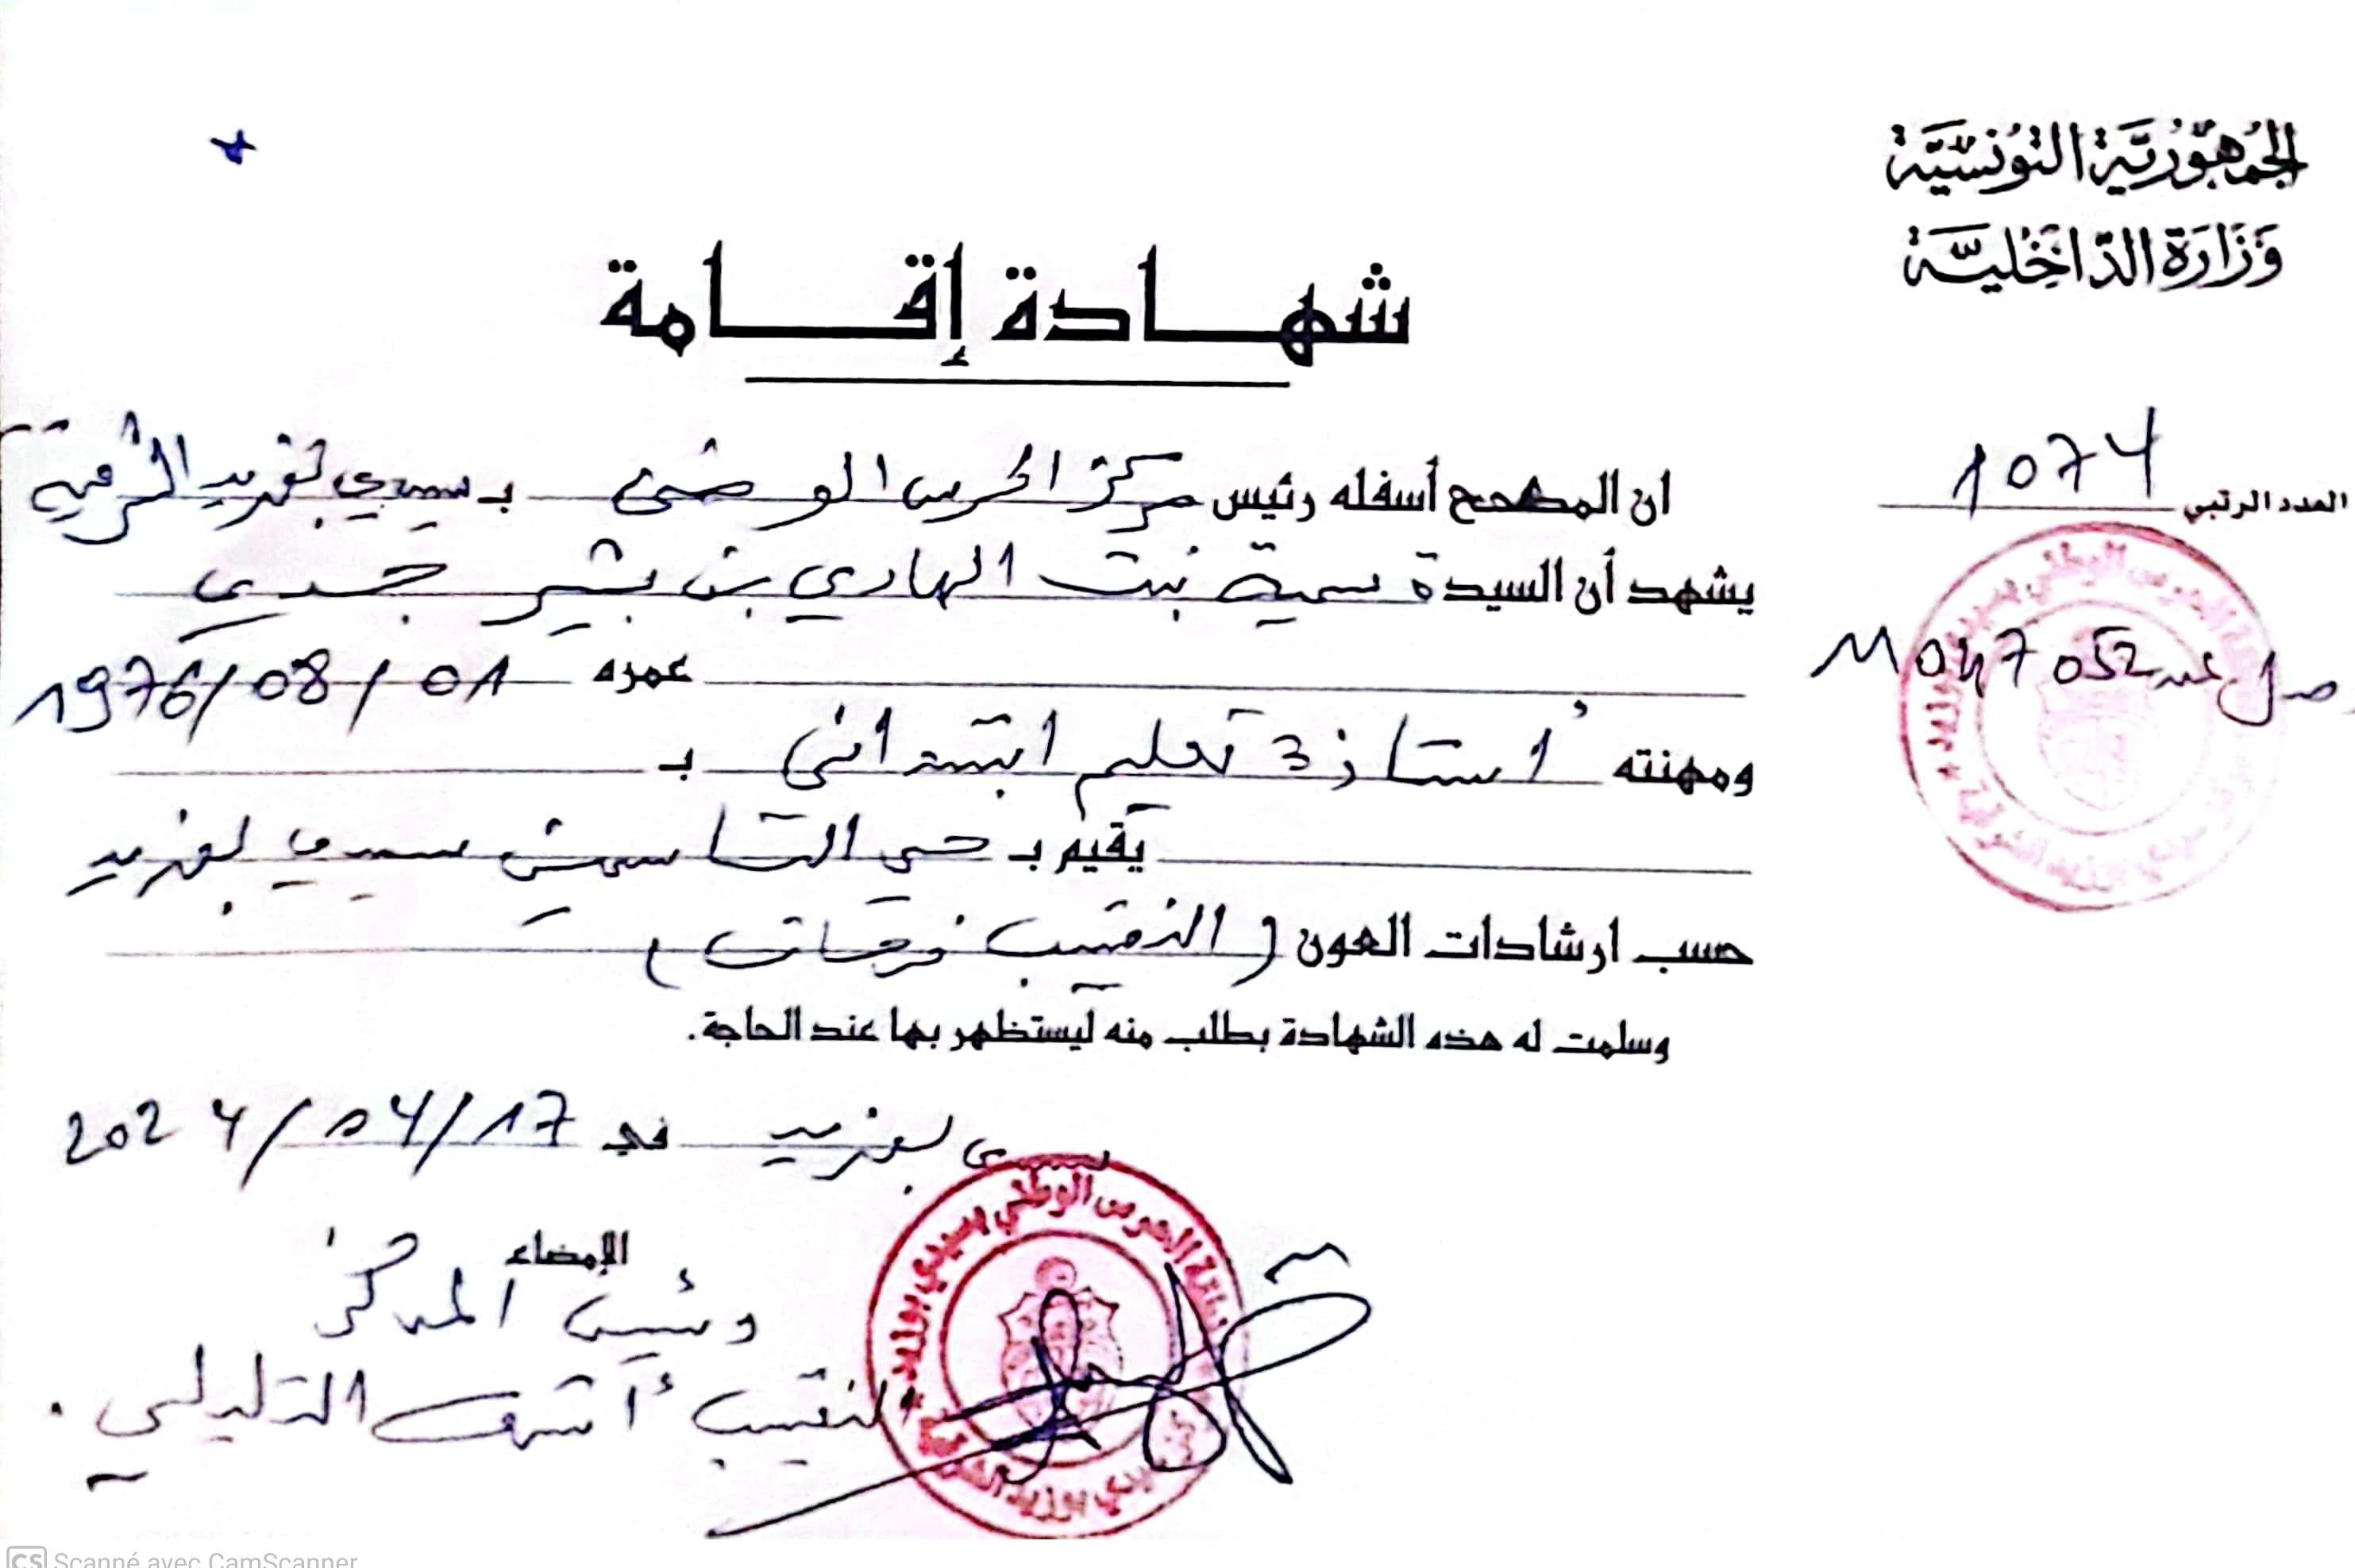 الجمهورية التونسية
وزارة الداخلية
شهادة إقامة
العدد الرتبي 1074
وصل عدد M047052
ان المصحح أسفله رئيس مركز الحرس الوطني بـ سيدي بوزيد الشرقية
يشهد أن السيدة سمية بنت الهادي بن بشير جدي
عمره 1976/08/01
ومهنته أستاذة تعليم ابتدائي بـ
يقيم بـ حي سيدي بوزيد
حسب ارشادات العون (النقيب فرحات)
وسلمت له هذه الشهادة بطلب منه ليستظهر بها عند الحاجة.
سيدي بوزيد في 17/04/2024
الإمضاء
رئيس المركز
النقيب أشرف التليلي.
الحرس الوطني بسيدي بوزيد
CS Scanné avec CamScanner